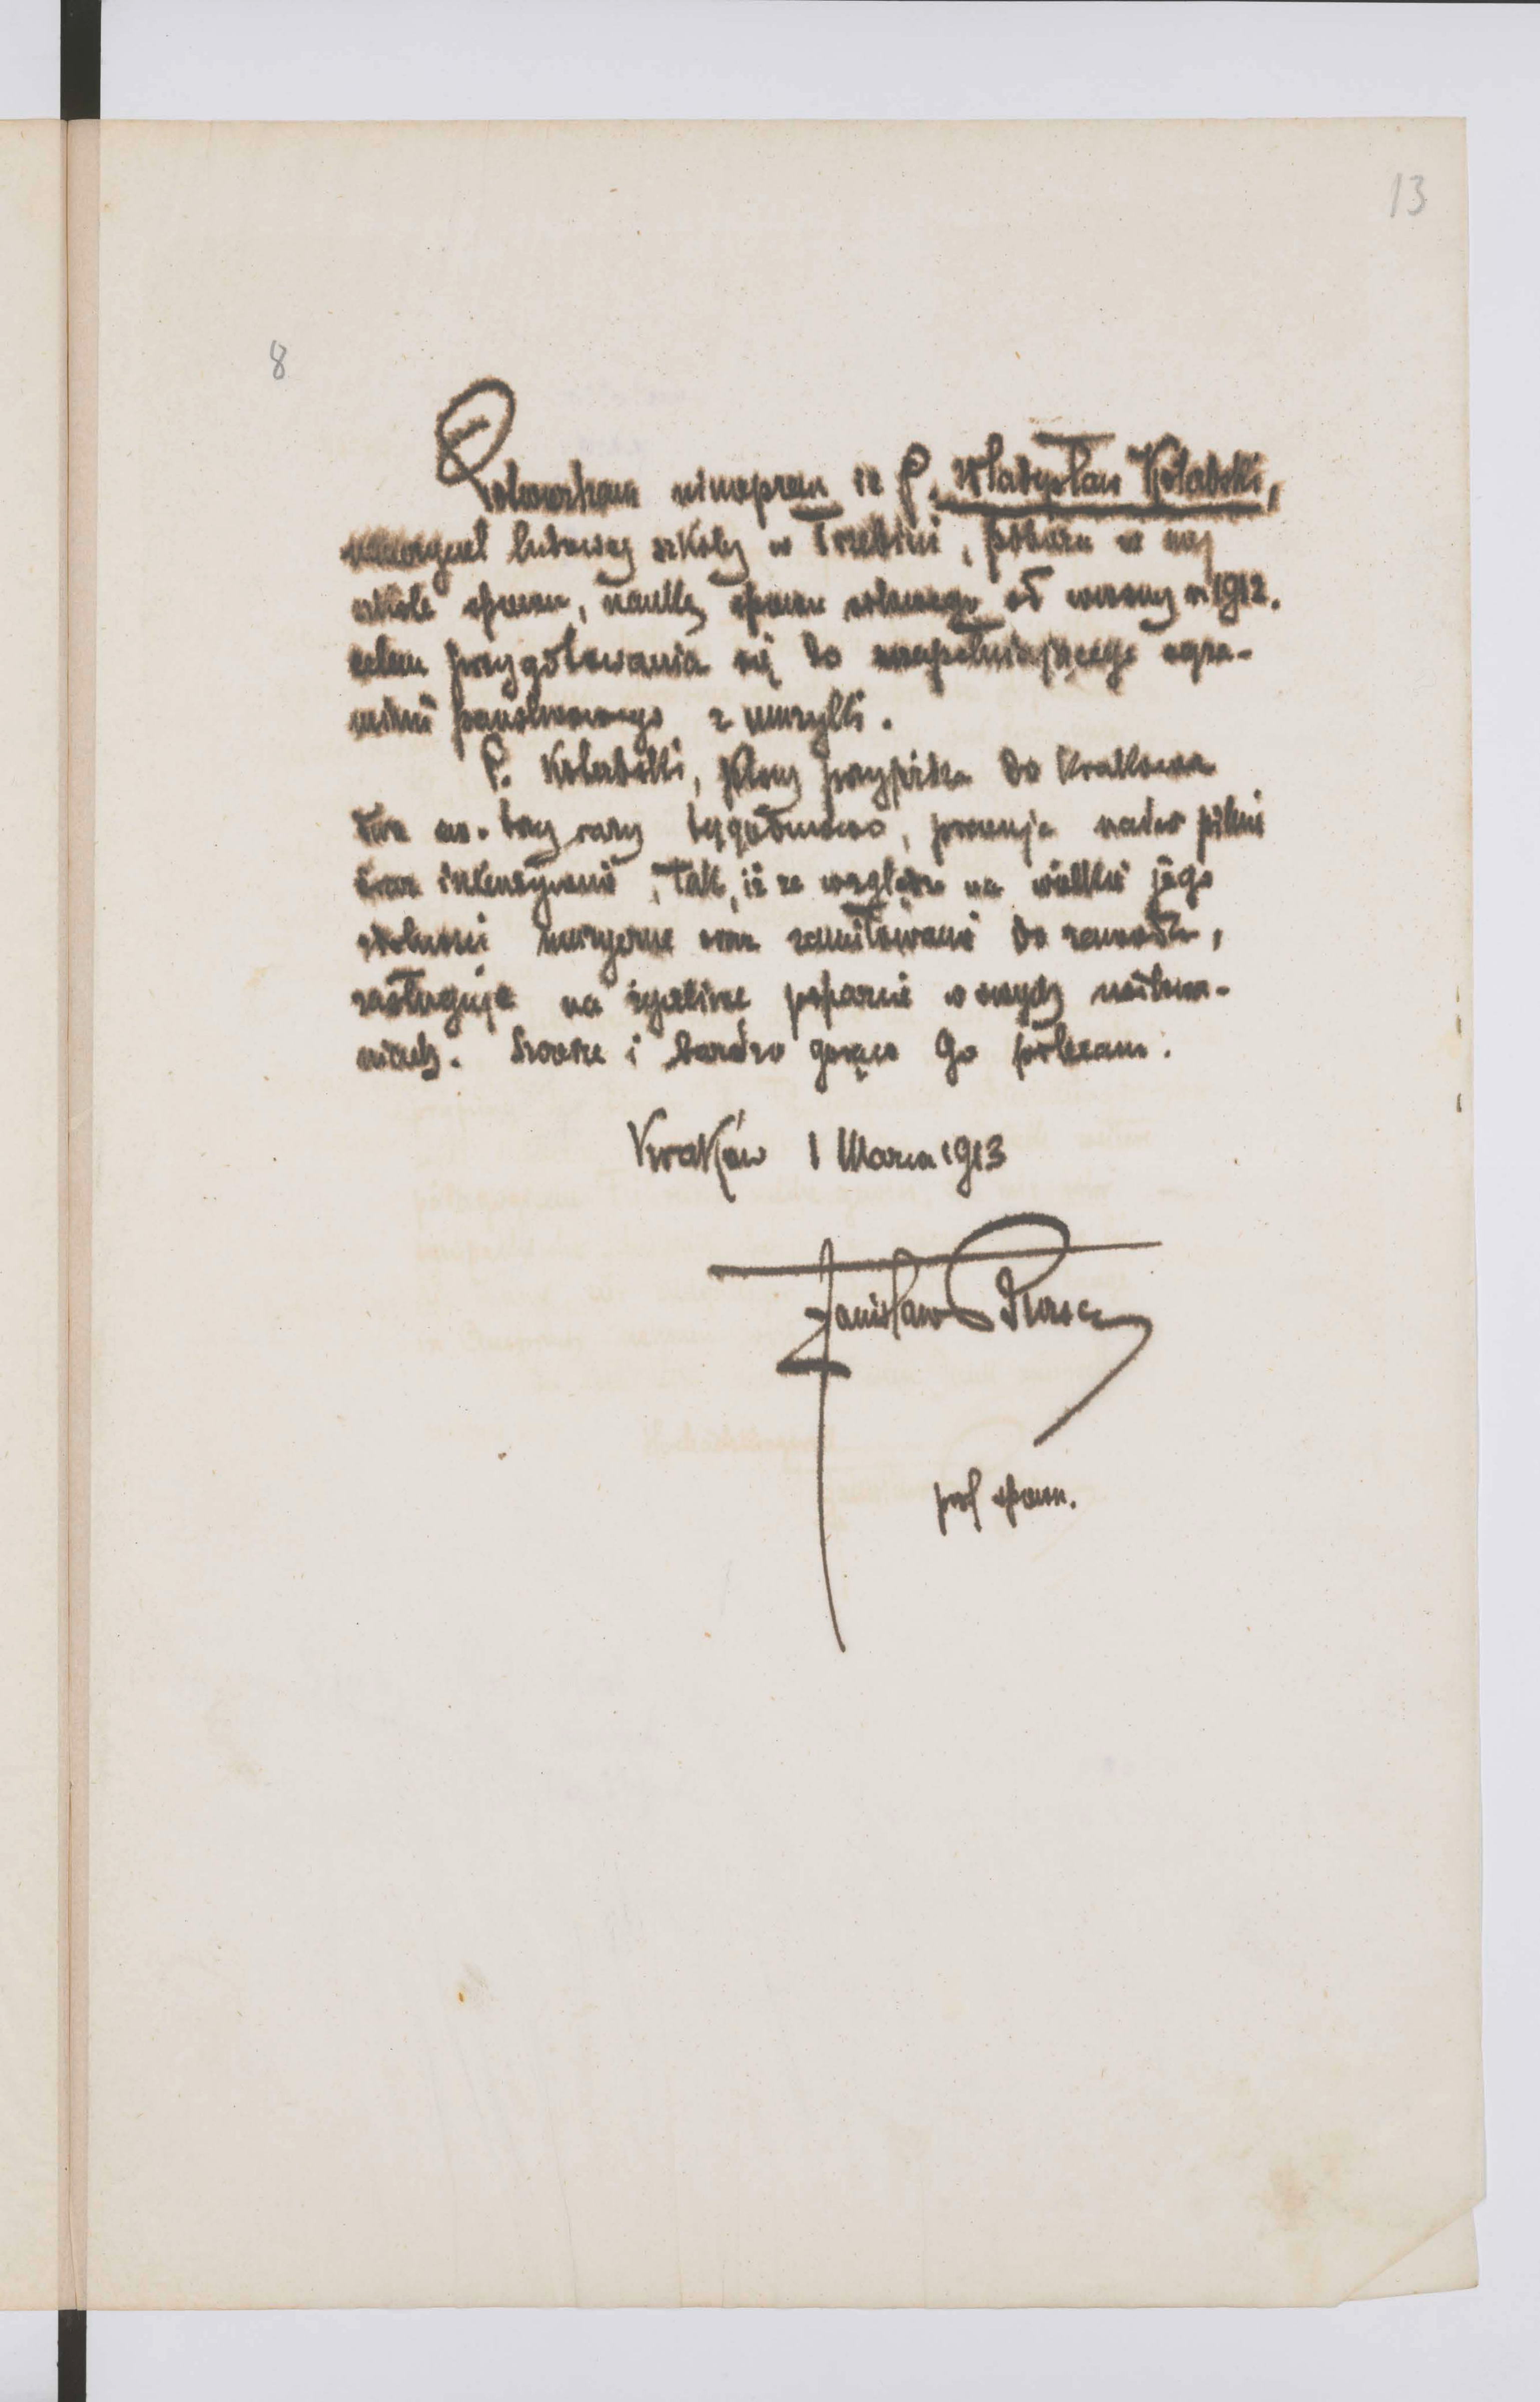 13
8
Potwierdzam niniejszem iż P. Władysław Kolabski,
nauczyciel ludowej szkoły w Trzebini, pobiera w mej
szkole śpiewu, naukę śpiewu solowego od wiosny r. 1912.
celem przygotowania się do uzupełniającego egza-
minu państwowego z muzyki.
P. , który przyjeżdża do Krakowa
dwa trzy razy tygodniowo, pracuje nader pilnie
oraz intenzywnie, tak, iż ze względu na wielkie jego
zdolności muzyczne oraz zamiłowanie do zawodu,
zasługuje na życzliwe poparcie w swych usiłowa-
niach. Szczerze i bardzo gorąco Go polecam.
Kraków 1 Marca 1913
Stanisław
prof śpiewu.